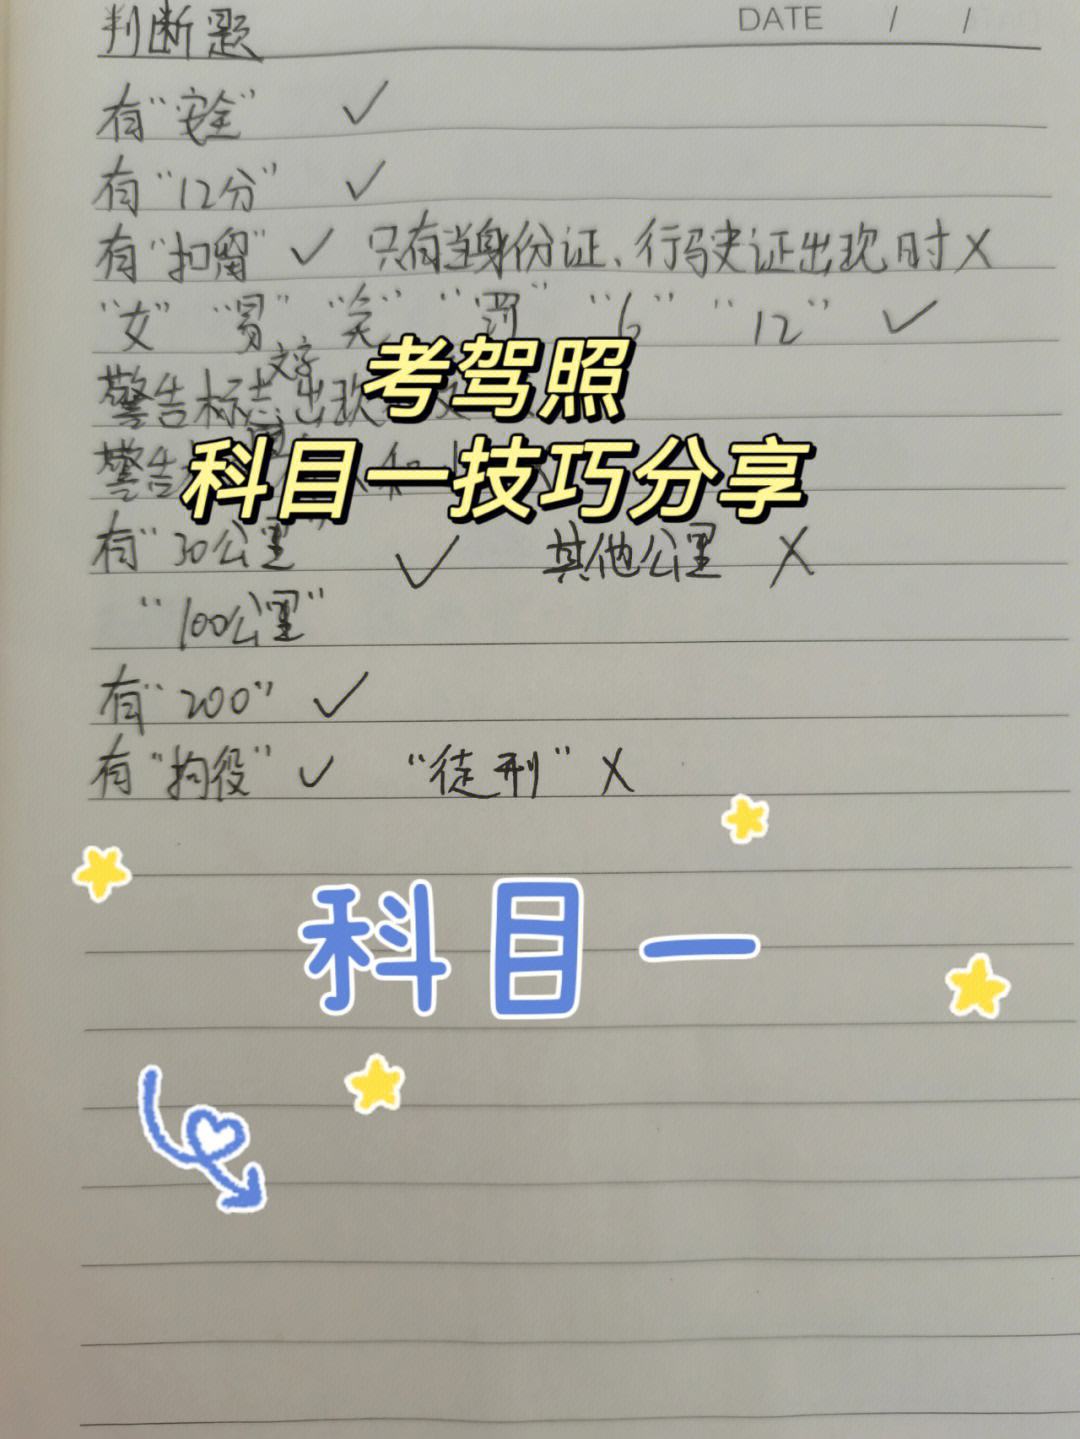 DATE / /
判断题
有“安全” ✓
有“12分” ✓
有“扣留” ✓ 只有当身份证、行驶证出现时 X
“女” “冒” “笑” “罚” “6” “12” ✓
文字
警告标志出现
考驾照
警告
科目一技巧分享
有“30公里” ✓ 其他公里 X
“100公里”
有“200” ✓
有“拘役” ✓ “徒刑” X
科目一